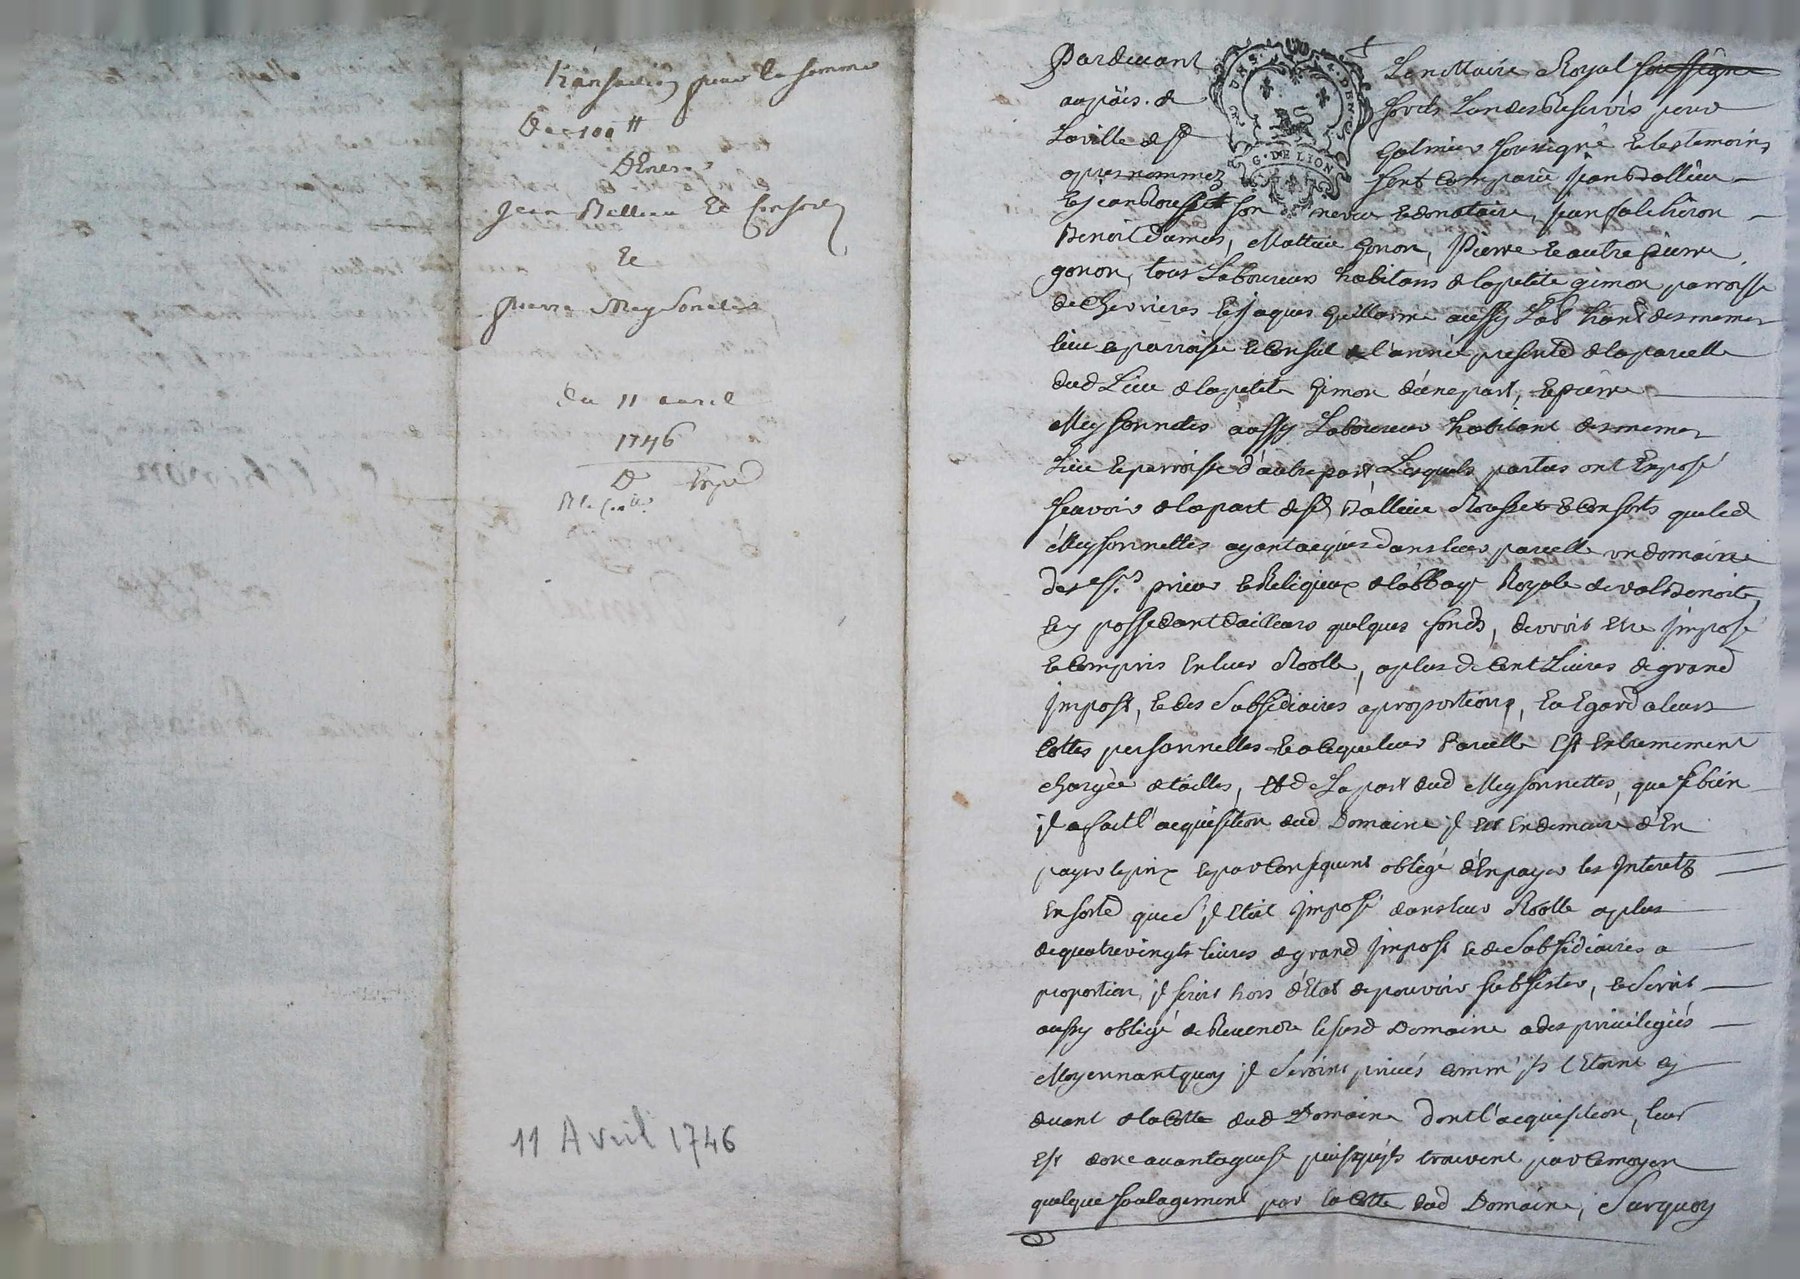 transaction pour la somme
De 100 tt
Entre
Jean Dallieu Et Consorts
Et
pierre Meysonettes
du 11 avril
1746
11 Avril 1746
Pardevant Le nottaire Royal soussigne
au païs de forets Landes Reservés pour
La ville de st Galmier soussigné Et les temoins
apres nommez sont comparû jean Dallieu
G. DE LION
Et jean Rousset son neveu Et donataire, jean
Benoit Dumas, Mattieu gonon, Pierre Et autre pierre
gonon, tous Laboureurs habitans de la petite gimon parroisse
de Chevrieres Et jaques Guillarme aussy Lab. habt. des memes
lieu Et parroisse Et Consul de l'année presente de la parcelle
dud Lieu de la petite Gimon d'une part, Et pierre
Meysonnetes aussy Laboureur habitant des memes
Lieu Et parroisse d'autre part Lesquels parties ont Exposé
scavoir de la part desd Dallieu Rousset & Consorts que led
Meysonnettes ayant acquis dans leur parcelle un domaine
des srs prieur Et Religieux de l'abbaye Royale de valbenoite,
Et y possedant dailleurs quelques fonds, devroit Etre Imposé
Et compris En leur Roolle, a plus de Cent Livres de grand
Impost, Et des Subsidiaires a proportions, Eu Egard a leurs
Cottes personnelles Et a ce que leur Parcelle Est Extremement
chargée de tailles, Et de La part dud Meysonnettes, que si bien
il a fait l'acquisition dud Domaine il Est En demeure d'En
payer le prix Et par Consequent obligé d'En payer les Interets
En sorte que s'il Etoit Imposé dans leur Roolle a plus
de quatrevingts livres de grand Impost Et de Subsidiaires a
proportion, il seroit hors d'Etat de pouvoir subsister, Et seroit
aussy obligé de Revendre lesusd Domaine a des privilegiés
Moyennant quoy il seroint privés comm' ils l'Etoint cy
devant de la Cotte dud Domaine dont l'acquisition, leur
Est donc avantageuse puisqu'ils trouvent par ce moyen
quelque soulagement par la Cotte dud Domaine, Surquoy